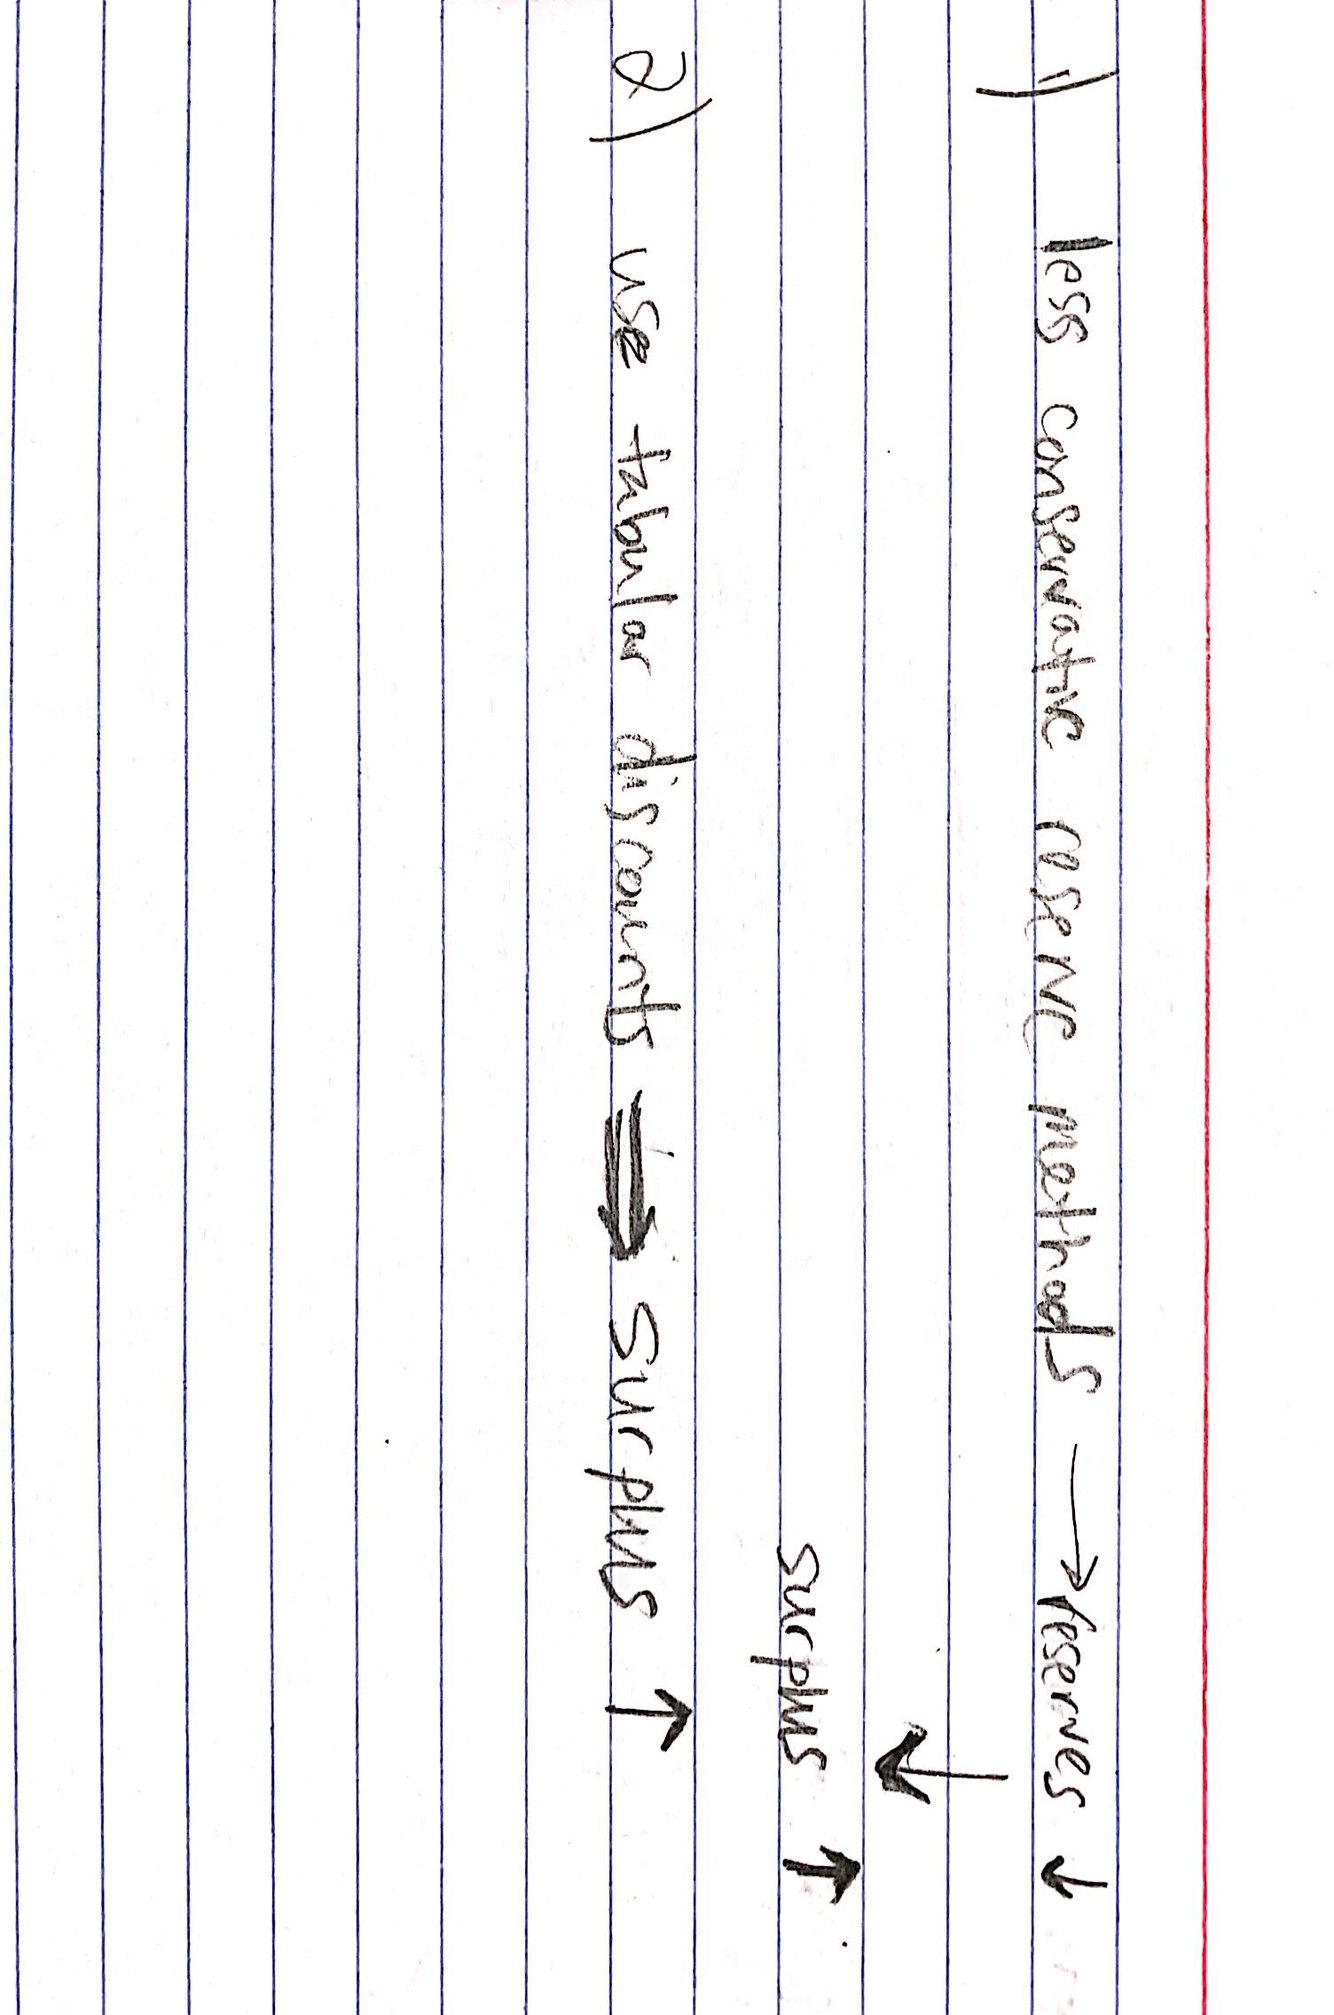 1) less conservative reserve methods → reserves ↓
↓
surplus ↑
2) use tabular discounts ⇒ surplus ↑